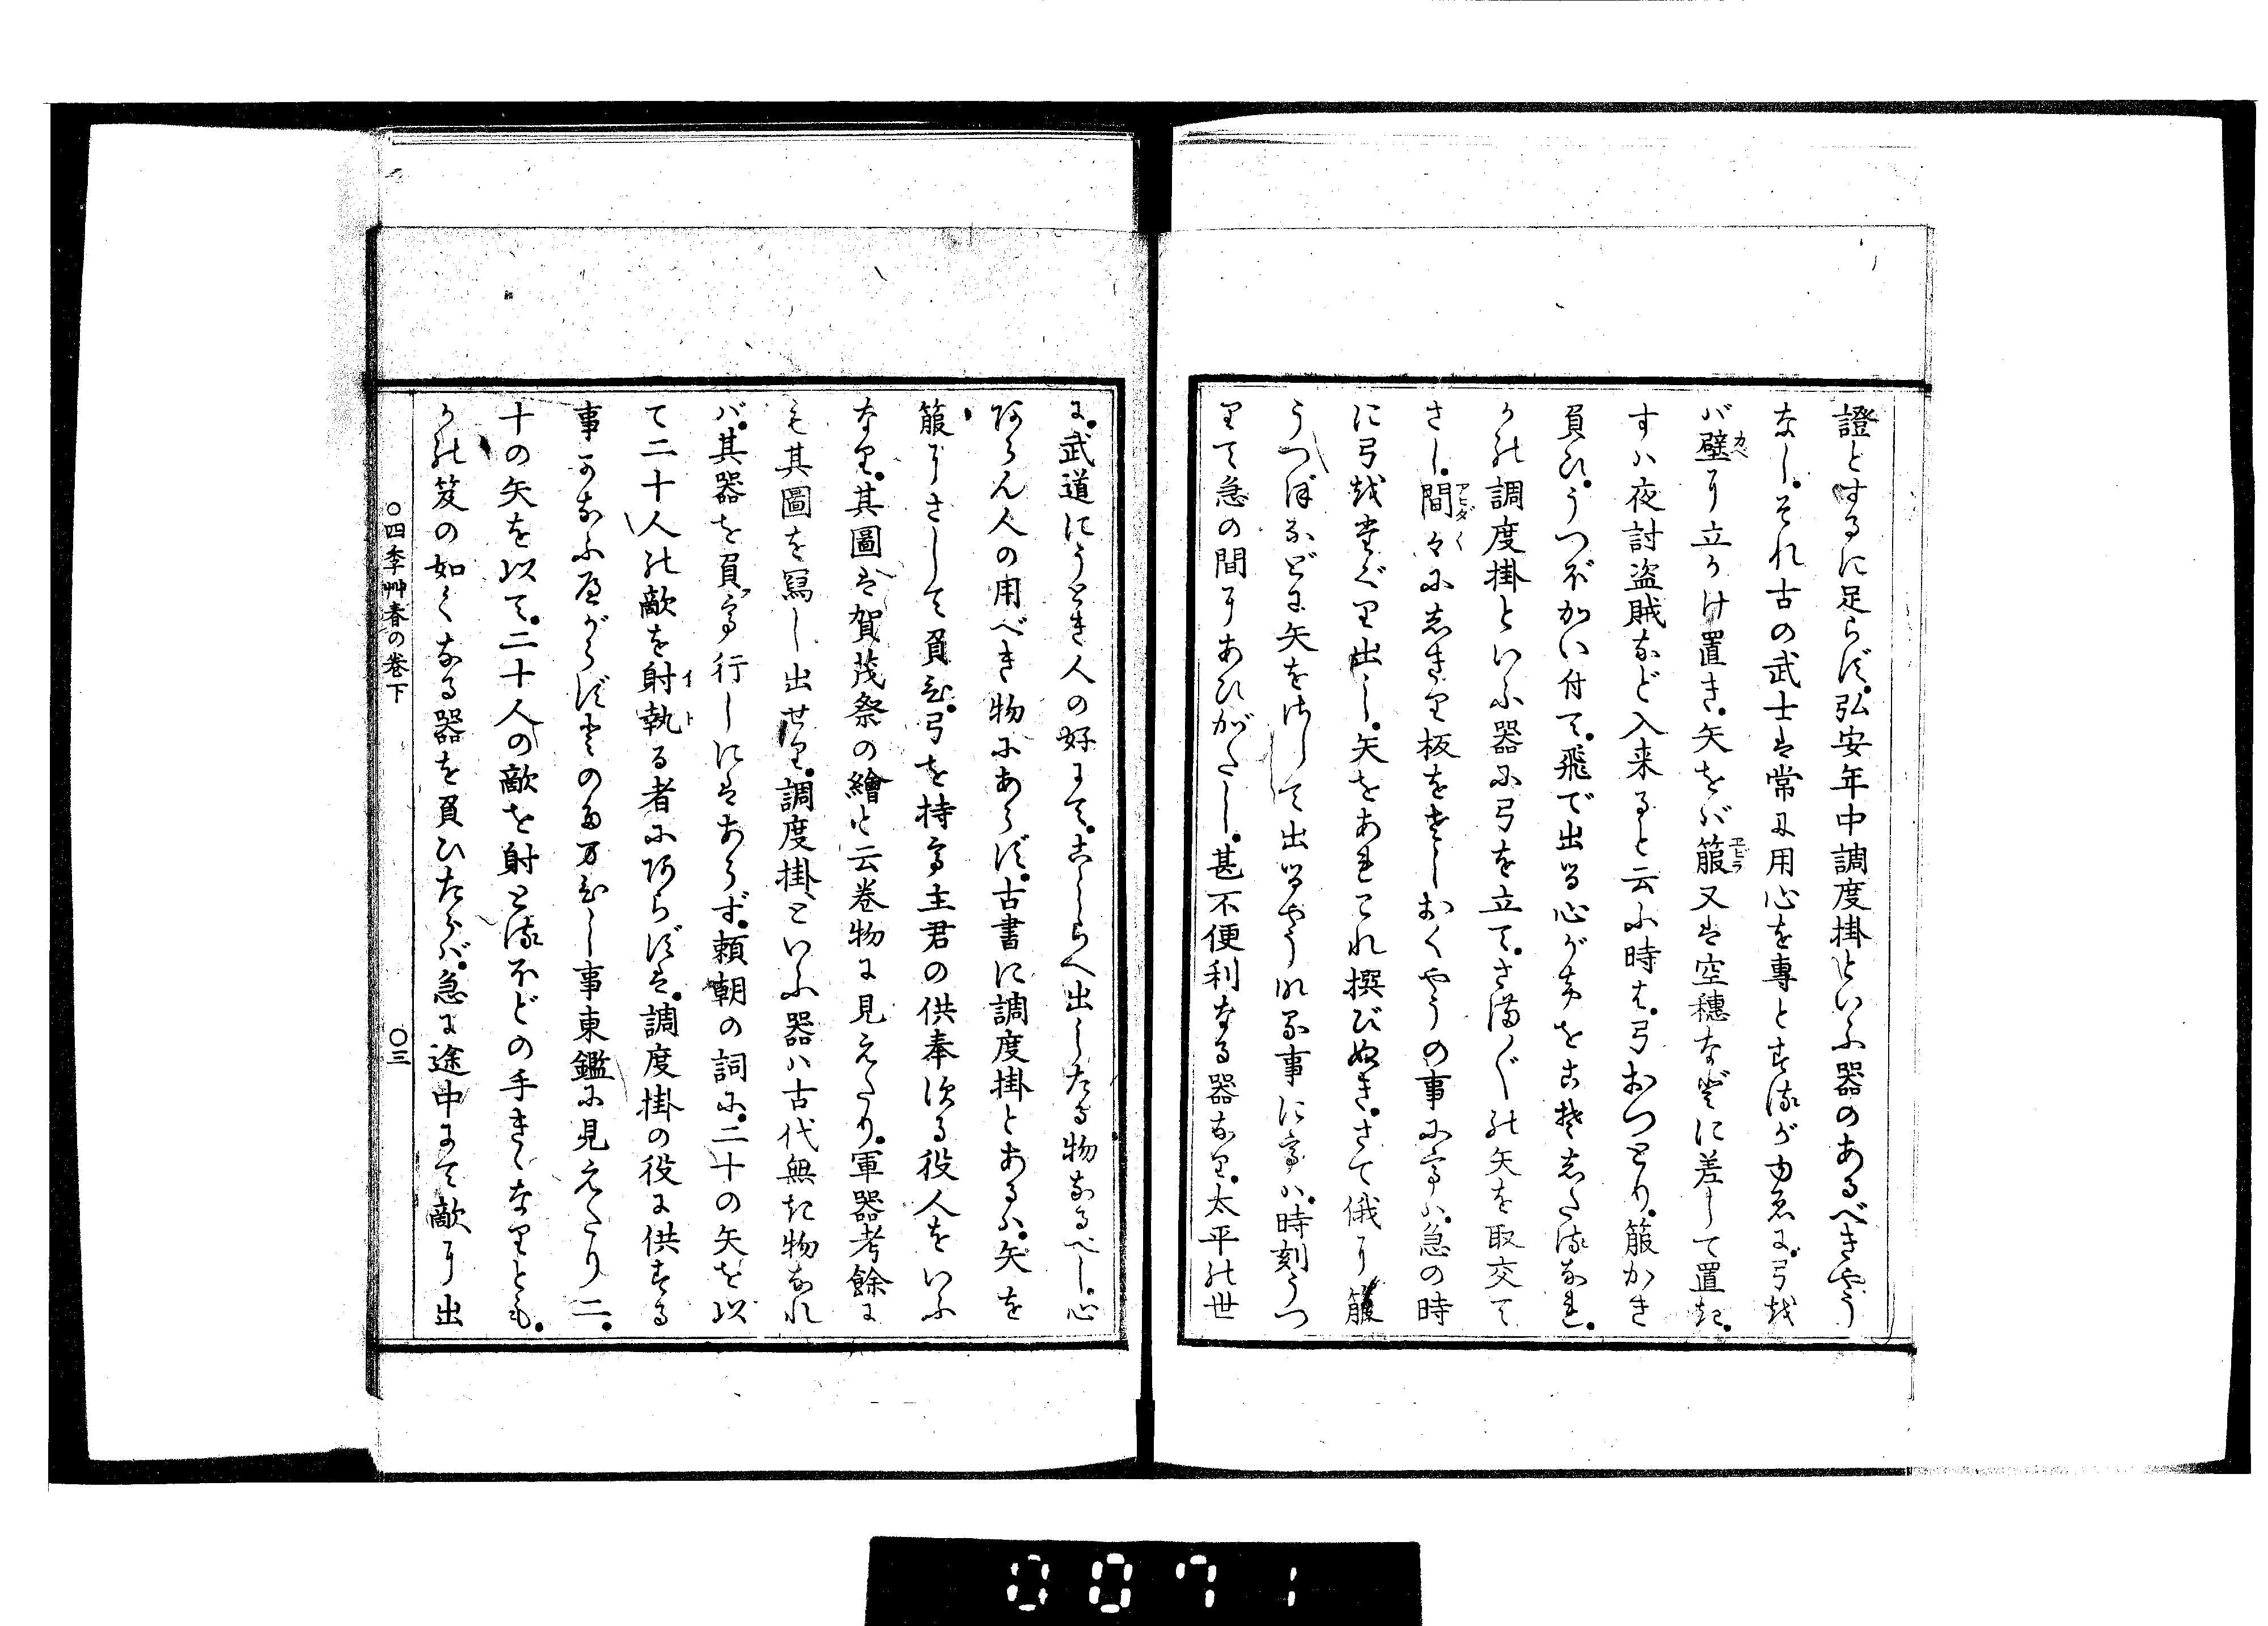 證とするに足らず。弘安年中調度掛といふ器のあるべきやう
なし。それ古の武士は常に用心を專とするがゆゑに。弓を
バ壁に立かけ置き。矢をバ箙又は空穗などに差して置き。
すハ夜討盗賊など入来ると云ふ時は。弓おつとり。箙かき
負ひ。うつぼかい付て。飛で出る心がけをこそしたるなれ。
かの調度掛といふ器に弓を立て。さま〴〵の矢を取交て
さし。間々にしきり板をさしおくやうの事にてハ。急の時
に弓をたぐり出し。矢をあれこれ撰びぬき。さて俄に箙
うつぼなどに矢をさして出るやうなる事にてハ。時刻うつ
りて急の間にあひがたし。甚不便利なる器なり。太平の世
に。武道にうとき人の好にて。こしらへ出したる物なるべし。心
あらん人の用べき物にあらず。古書に調度掛とあるハ。矢を
箙にさして負ひ。弓を持て主君の供奉する役人をいふ
なり。其圖は賀茂祭の繪と云巻物に見えたり。軍器考餘に
も其圖を寫し出せり。調度掛といふ器ハ古代無き物なれ
バ。其器を負て行しにはあらず。頼朝の詞に。二十の矢を以
て二十人の敵を射執る者にあらずは。調度掛の役に供する
事かなふべからずとのたまひし事東鑑に見えたり二。
十の矢を以て。二十人の敵を射とるほどの手きゝなりとも。
かの笈の如くなる器を負ひたらバ。急に途中にて敵に出
○四季艸春の巻下
○三
0071